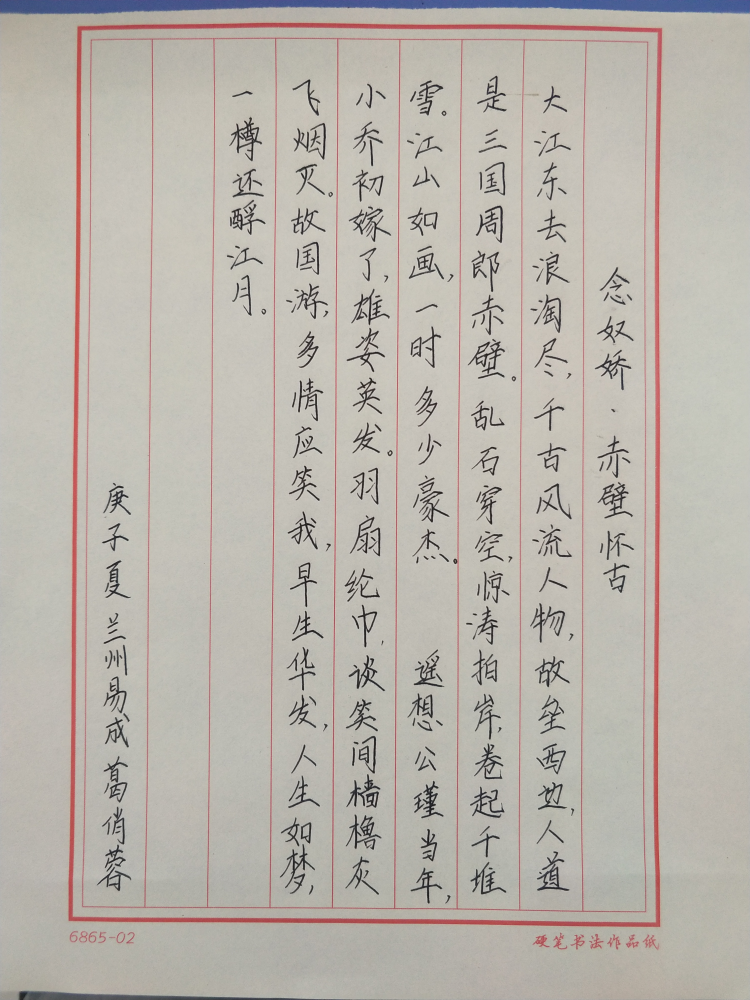 念奴娇·赤壁怀古
大江东去浪淘尽,千古风流人物,故垒西边,人道
是三国周郎赤壁。乱石穿空,惊涛拍岸,卷起千堆
雪。江山如画,一时多少豪杰。 遥想公瑾当年,
小乔初嫁了,雄姿英发。羽扇纶巾,谈笑间樯橹灰
飞烟灭。故国游,多情应笑我,早生华发,人生如梦,
一樽还酹江月。
庚子夏兰州易成葛俏蓉
6865-02
硬笔书法作品纸